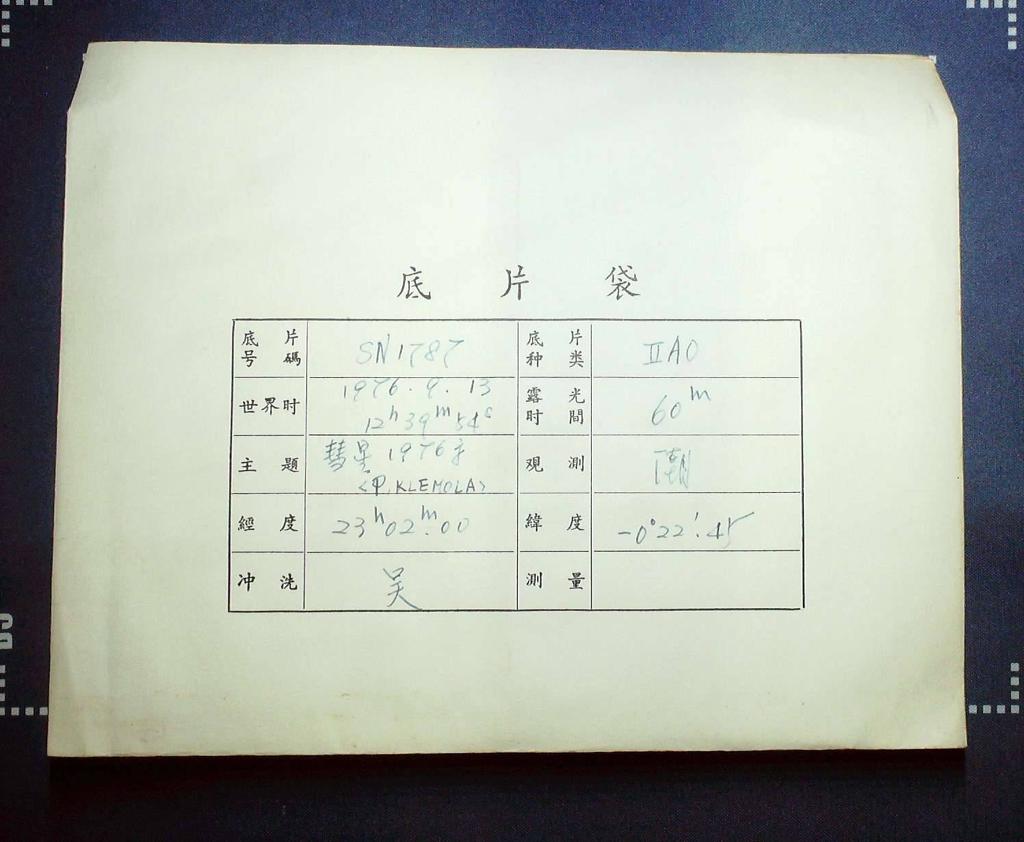 底片袋
底片号碼 SN1787 底片种类 IIAO
世界时 1976.9.13 12h39m54s 露光时間 60m
主題 彗星1976 <P.KLEMOLA> 观測
經度 23h02m.00 緯度 -0°22'.45
冲洗 吴 測量